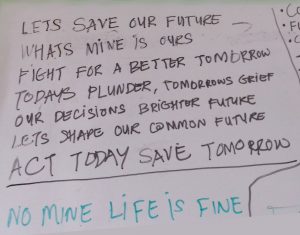 LETS SAVE OUR FUTURE
WHATS MINE IS OURS
FIGHT FOR A BETTER TOMORROW
TODAYS PLUNDER, TOMORROWS GRIEF
OUR DECISIONS BRIGHTER FUTURE
LETS SHAPE OUR COMMON FUTURE
ACT TODAY SAVE TOMORROW
NO MINE LIFE IS FINE